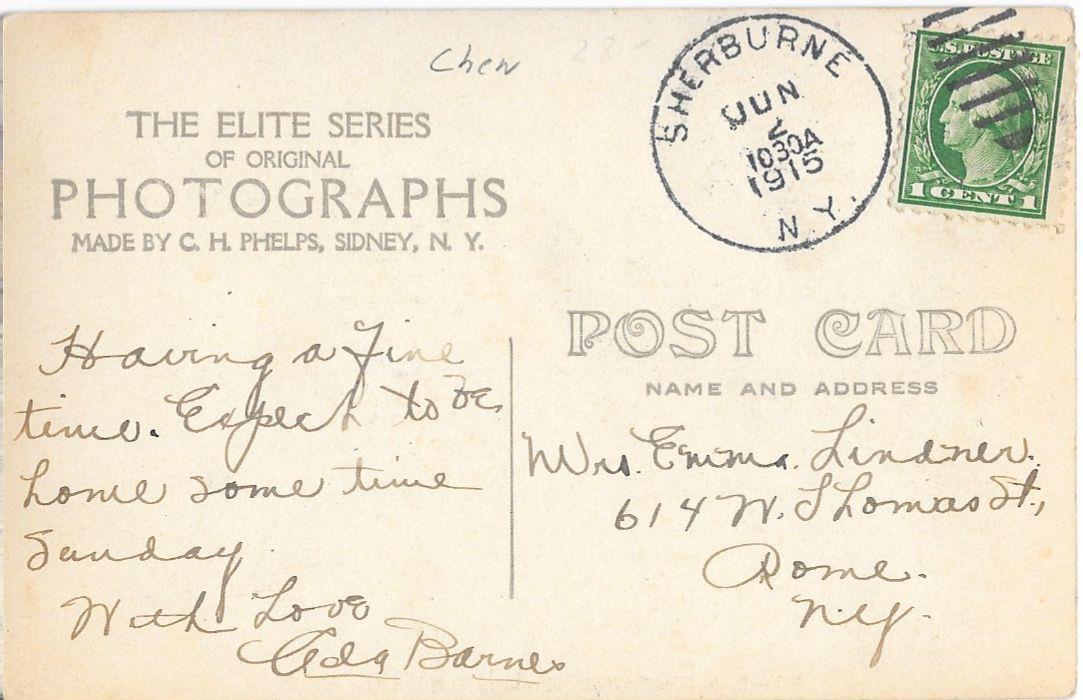 Chen
THE ELITE SERIES
OF ORIGINAL
PHOTOGRAPHS
MADE BY C. H. PHELPS, SIDNEY, N. Y.
SHERBURNE
JUN
2
1030A
1915
N.Y.
U.S. POSTAGE
1 CENT 1
Having a fine
time. Expect to be
home some time
Sunday.
With Love
Ada Barnes
POST CARD
NAME AND ADDRESS
Mrs. Emma. Lindner.
614 W. Thomas St.,
Rome.
N.Y.